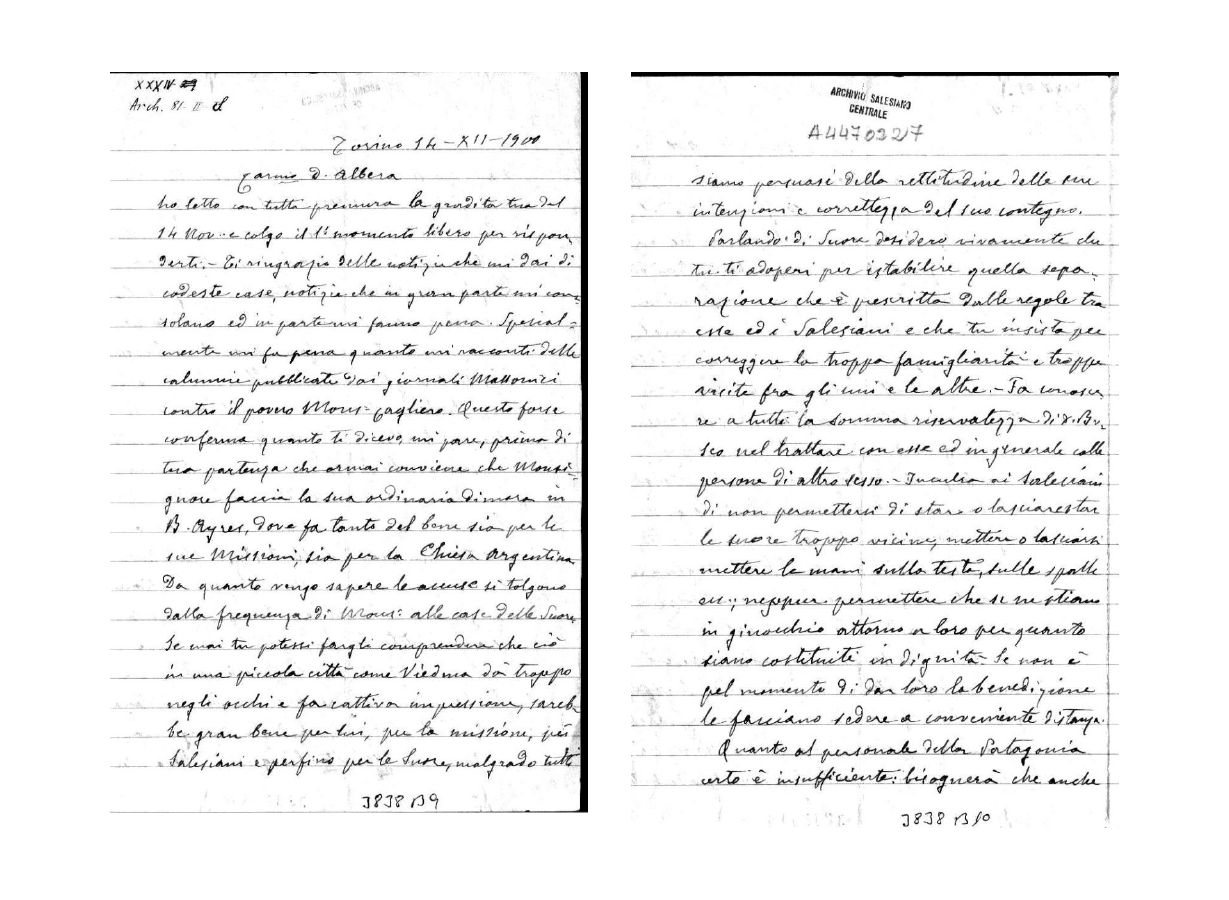 XXXIV 29
Arch. 81-II
Torino 14-XII-1900
Carmo D. Albera
ho letto con tutta premura la gradita tua del
14 Nov. e colgo il 1° momento libero per rispon
derti. - Ti ringrazio delle notizie che mi dai di
codeste case, notizie che in gran parte mi con=
solano ed in parte mi fanno pena. Special=
mente mi fa pena quanto mi racconti delle
calunnie pubblicate dai giornali Massonici
contro il povero Mons: Cagliero. Questo forse
conferma quanto ti diceva, mi pare, prima di
tua partenza che ormai conviene che Monsi-
gnore faccia la sua ordinaria dimora in
B. Ayres, dove fa tanto del bene sia per le
sue Missioni, sia per la Chiesa Argentina.
Da quanto vengo sapere le accuse si tolgono
dalla frequenza di Mons: alle case delle Suore.
Se mai tu potessi fargli comprendere che ciò
in una piccola città come Viedma dà troppo
negli occhi e fa cattiva impressione, sareb
be gran bene per lui, per la missione, pei
Salesiani e perfino per le Suore, malgrado tutti
3838 B9
ARCHIVIO SALESIANO
CENTRALE
A4470327
siamo persuasi della rettitudine delle sue
intenzioni e correttezza del suo contegno.
Parlando di Suore desidero vivamente che
tu ti adoperi per istabilire quella sepa-
razione che è prescritta dalle regole tra
esse ed i Salesiani e che tu insista per
correggere la troppa famigliarità e troppe
visite fra gli uni e le altre. - Fa conosce
re a tutti la somma riservatezza di D. Bo-
sco nel trattare con esse ed in generale colle
persone di altro sesso. - Inculca ai Salesiani
di non permettersi di stare o lasciare star
le suore troppo vicine, mettere o lasciarsi
mettere le mani sulla testa, sulle spalle
ecc.; neppur permettere che se ne stiano
in ginocchio attorno a loro per quanto
siano costituiti in dignità. Se non è
pel momento di dar loro la benedizione
le facciano sedere a conveniente distanza.
Quanto al personale della Patagonia
certo è insufficiente: bisognerà che anche
3838 B10